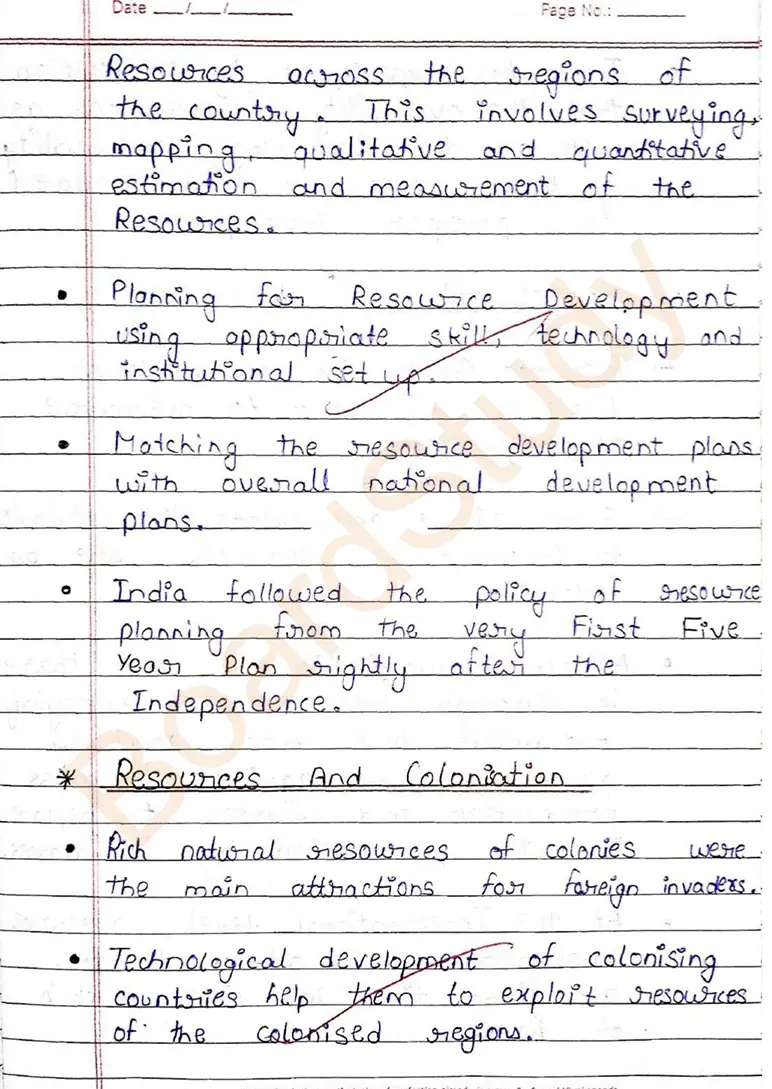 Date __/__/____ Page No.: ____
Resources across the regions of
the country. This involves surveying,
mapping, qualitative and quantitative
estimation and measurement of the
Resources.
• Planning for Resource Development
using appropriate skill, technology and
institutional set up.
• Matching the resource development plans
with overall national development
plans.
• India followed the policy of resource
planning from the very First Five
Year Plan rightly after the
Independence.
* Resources And Colonisation
• Rich natural resources of colonies were
the main attractions for foreign invaders.
• Technological development of colonising
countries help them to exploit resources
of the colonised regions.
BoardStudy